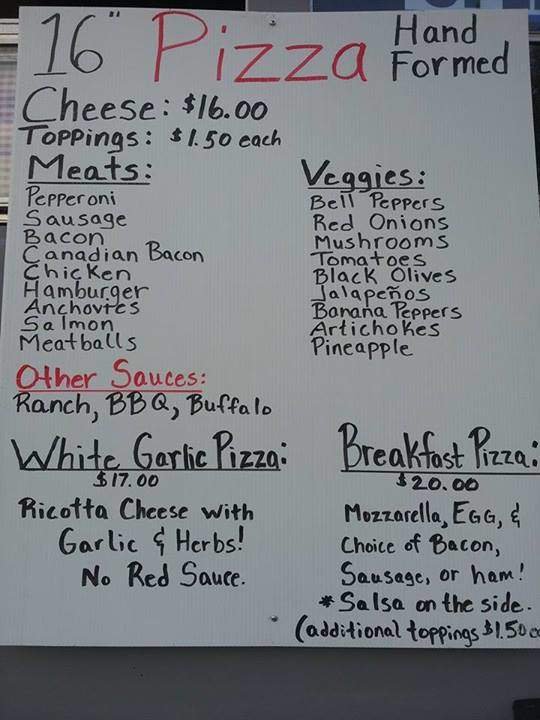 16" Pizza Hand Formed
Cheese: $16.00
Toppings: $1.50 each
Meats:
Pepperoni
Sausage
Bacon
Canadian Bacon
Chicken
Hamburger
Anchovies
Salmon
Meatballs
Veggies:
Bell Peppers
Red Onions
Mushrooms
Tomatoes
Black Olives
Jalapeños
Banana Peppers
Artichokes
Pineapple
Other Sauces:
Ranch, BBQ, Buffalo
White Garlic Pizza:
$17.00
Ricotta Cheese with
Garlic & Herbs!
No Red Sauce.
Breakfast Pizza:
$20.00
Mozzarella, EGG, &
Choice of Bacon,
Sausage, or ham!
* Salsa on the side.
(additional toppings $1.50